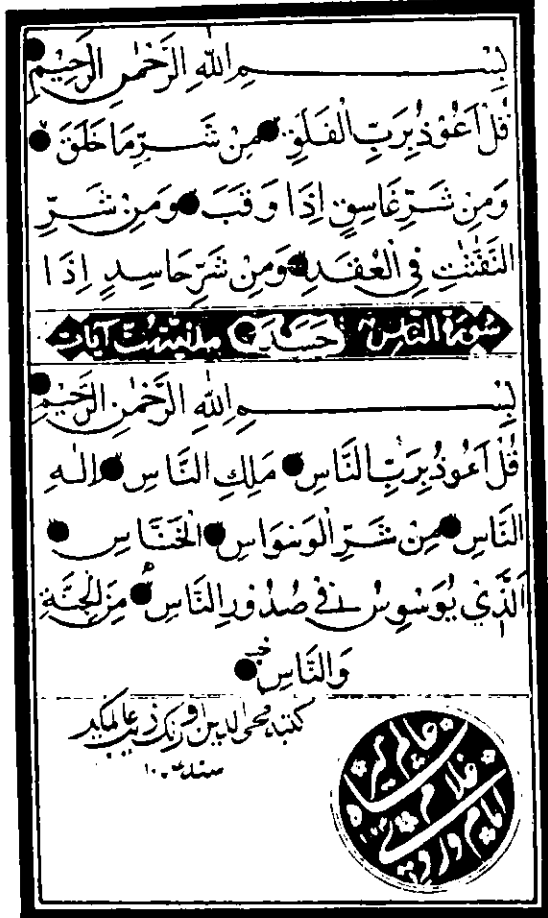 بِسْمِ اللّٰهِ الرَّحْمٰنِ الرَّحِيْمِ
قُلْ اَعُوْذُ بِرَبِّ الْفَلَقِ مِنْ شَرِّ مَا خَلَقَ
وَمِنْ شَرِّ غَاسِقٍ اِذَا وَقَبَ وَمِنْ شَرِّ
النَّفّٰثٰتِ فِي الْعُقَدِ وَمِنْ شَرِّ حَاسِدٍ اِذَا
سورة الناس حَسَدَ مدنية ست آيات
بِسْمِ اللّٰهِ الرَّحْمٰنِ الرَّحِيْمِ
قُلْ اَعُوْذُ بِرَبِّ النَّاسِ مَلِكِ النَّاسِ اِلٰهِ
النَّاسِ مِنْ شَرِّ الْوَسْوَاسِ الْخَنَّاسِ
الَّذِيْ يُوَسْوِسُ فِيْ صُدُوْرِ النَّاسِ مِنَ الْجِنَّةِ
وَالنَّاسِ
كتبه محى الدين اورنگ زيب عالمگير
سنه
عالم گير
شاه
غلام
امام وردى